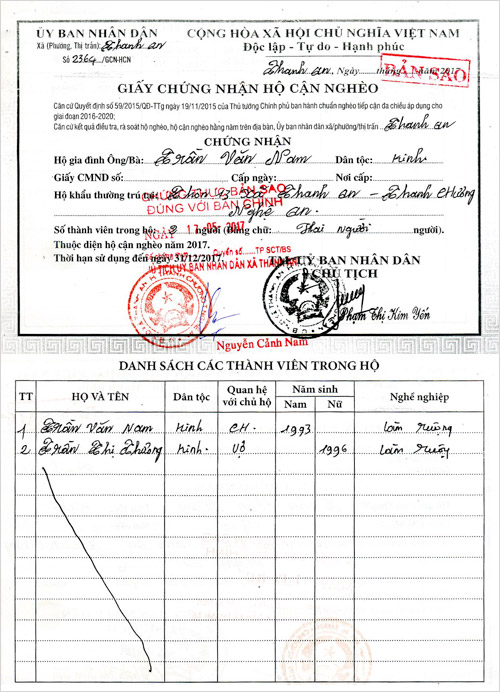 ỦY BAN NHÂN DÂN
Xã (Phường, Thị trấn): Thanh An
Số 2364/GCN-HCN
CỘNG HÒA XÃ HỘI CHỦ NGHĨA VIỆT NAM
Độc lập - Tự do - Hạnh phúc
Thanh An, Ngày.....tháng
BẢN SAO
GIẤY CHỨNG NHẬN HỘ CẬN NGHÈO
Căn cứ Quyết định số 59/2015/QĐ-TTg ngày 19/11/2015 của Thủ tướng Chính phủ ban hành chuẩn nghèo tiếp cận đa chiều áp dụng cho
giai đoạn 2016-2020;
Căn cứ kết quả điều tra, rà soát hộ nghèo, hộ cận nghèo hằng năm trên địa bàn, Ủy ban nhân dân xã/phường/thị trấn Thanh An
CHỨNG NHẬN
Hộ gia đình Ông/Bà: Trần Văn Nam Dân tộc: Kinh
Giấy CMND số: Cấp ngày: Nơi cấp:
Hộ khẩu thường trú tại: Thôn Xã Thanh An - Thanh Chương
CHỨNG THỰC BẢN SAO
ĐÚNG VỚI BẢN CHÍNH
Nghệ An.
Số thành viên trong hộ: 2 người (Bằng chữ: Hai người người).
NGÀY 17-05-2017
Thuộc diện hộ cận nghèo năm 2017.
Quyển số TP SCT/BS
Thời hạn sử dụng đến ngày 31/12/2017.
TM. ỦY BAN NHÂN DÂN
CHỦ TỊCH
TICH ỦY BAN NHÂN DÂN XÃ THANH AN
Phạm Thị Kim Yến
Nguyễn Cảnh Nam
DANH SÁCH CÁC THÀNH VIÊN TRONG HỘ
TT HỌ VÀ TÊN Dân tộc Quan hệ với chủ hộ Năm sinh Nam Nữ Nghề nghiệp
1 Trần Văn Nam Kinh CH. 1993 Làm ruộng
2 Trần Thị Thương Kinh. Vợ 1996 Làm ruộng